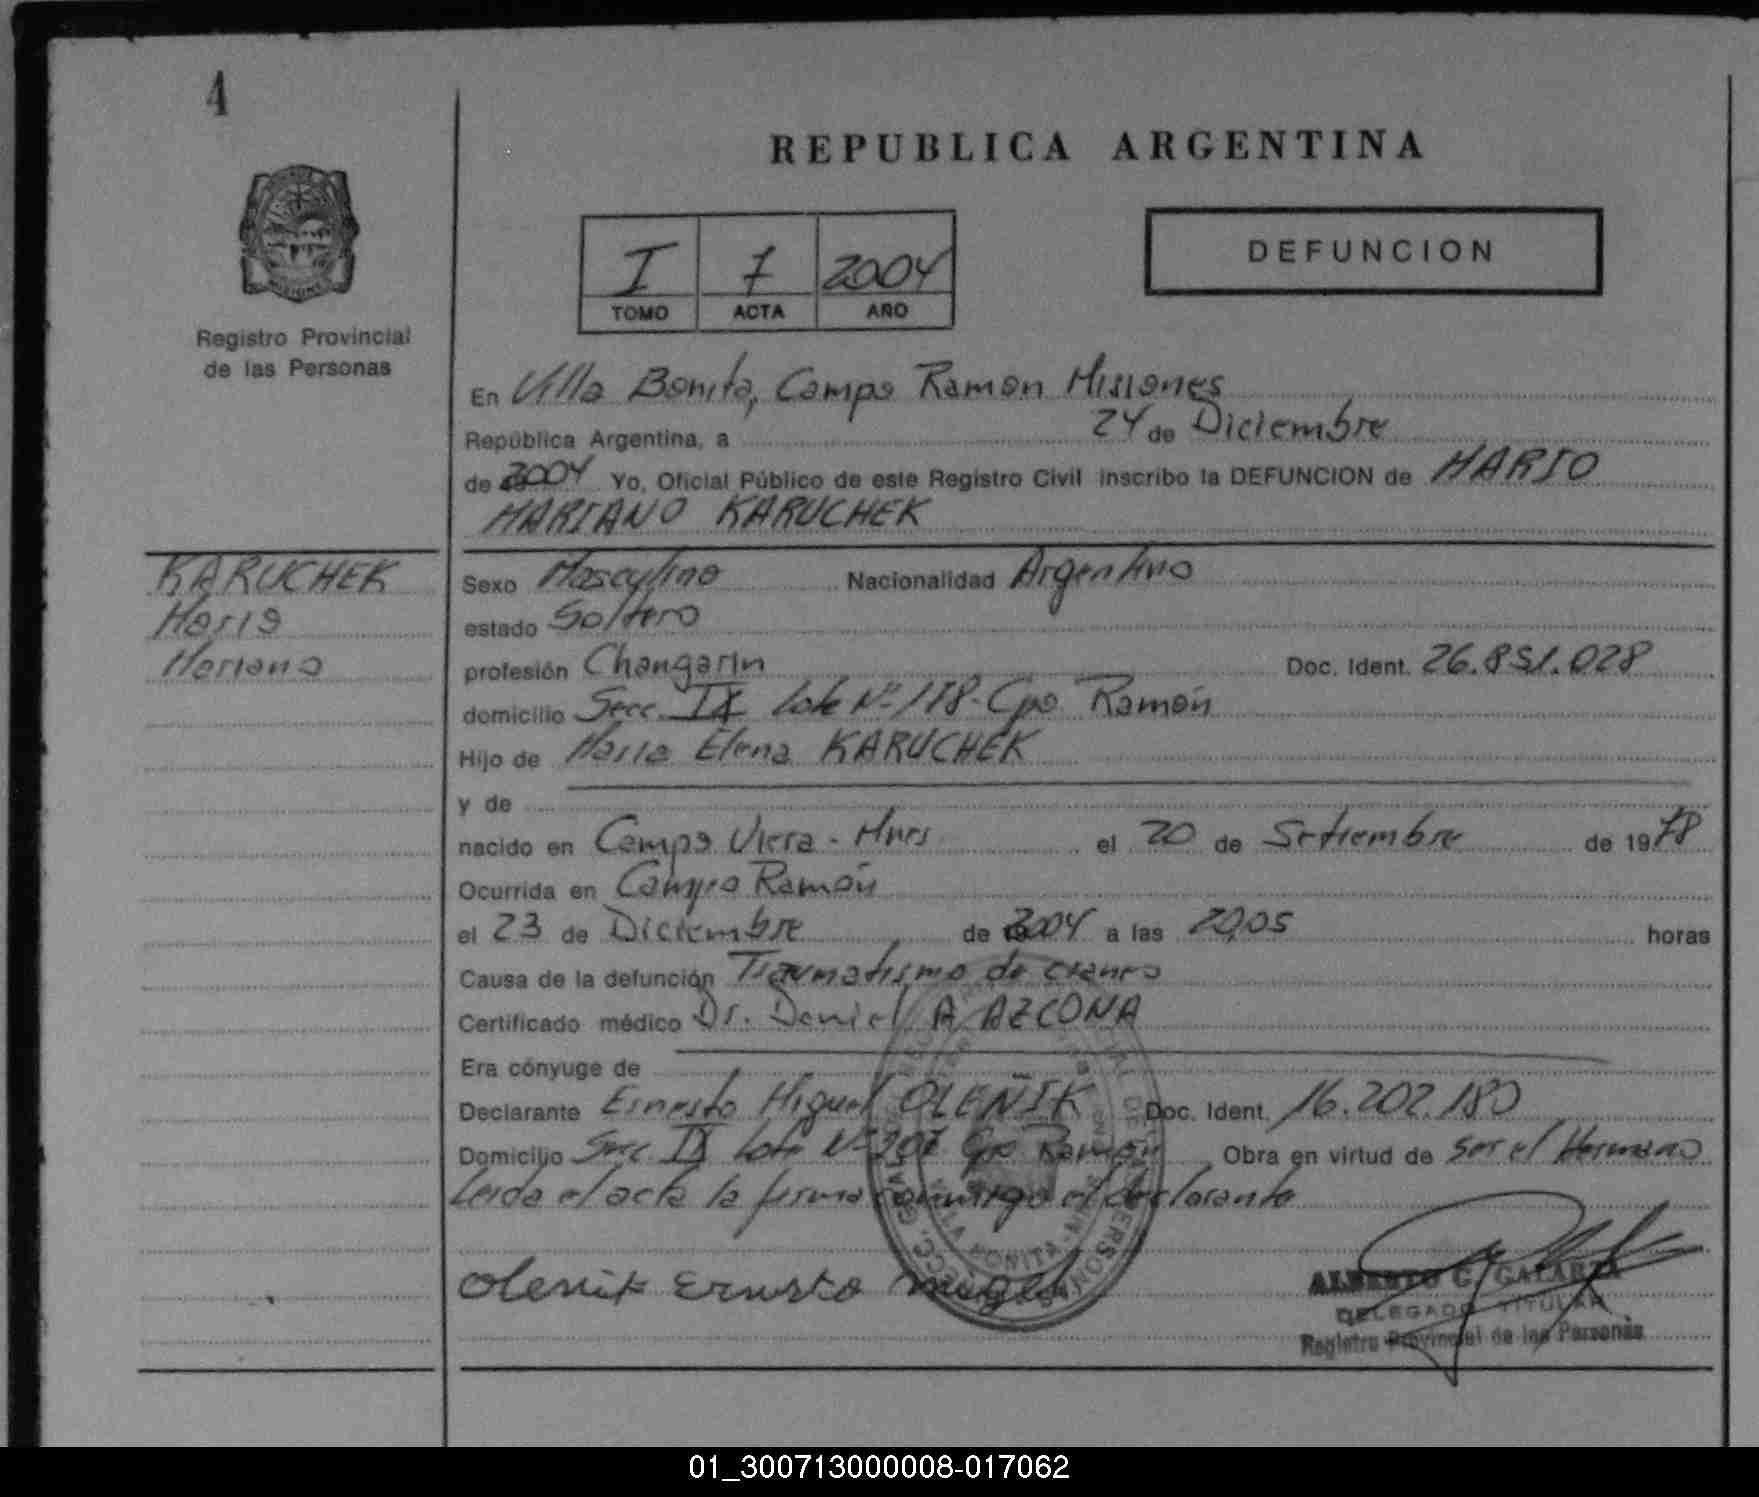 4
REPUBLICA ARGENTINA
I 7 2004
TOMO ACTA AÑO
DEFUNCION
Registro Provincial
de las Personas
En Villa Bonita, Campo Ramon Misiones
República Argentina, a 24 de Diciembre
de 2004 Yo, Oficial Público de este Registro Civil inscribo la DEFUNCION de MARIO
MARIANO KARUCHEK
KARUCHEK
Mario
Mariano
Sexo Masculino Nacionalidad Argentino
estado Soltero
profesión Changarin Doc. Ident. 26.851.028
domicilio Secc. IX Lote Nº 118- Cpo Ramón
Hijo de Maria Elena KARUCHEK
y de
nacido en Campo Viera - Mnes el 20 de Setiembre de 1978
Ocurrida en Campo Ramón
el 23 de Diciembre de 2004 a las 20,05 horas
Causa de la defunción Traumatismo de craneo
Certificado médico Dr. Daniel A AZCONA
Era cónyuge de
Declarante Ernesto Miguel OLEÑIK Doc. Ident. 16.202.180
Domicilio Secc IX Lote Nº 207 Cpo Ramón Obra en virtud de ser el Hermano
Leida el acta la firma conmigo el declarante
Olenik Ernesto Miguel
ALBERTO C. GALARZA
DELEGADO TITULAR
Registro Provincial de las Personas
01_300713000008-017062